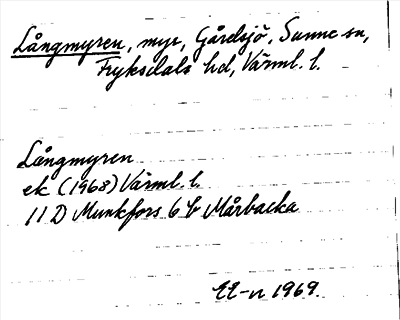 Långmyren, myr, Gårdsjö, Sunne sn,
Fryksdals hd, Värml. l.
Långmyren
ek (1968) Värml. l.
11 D Munkfors 6 b Mårbacka
EE-n 1969.